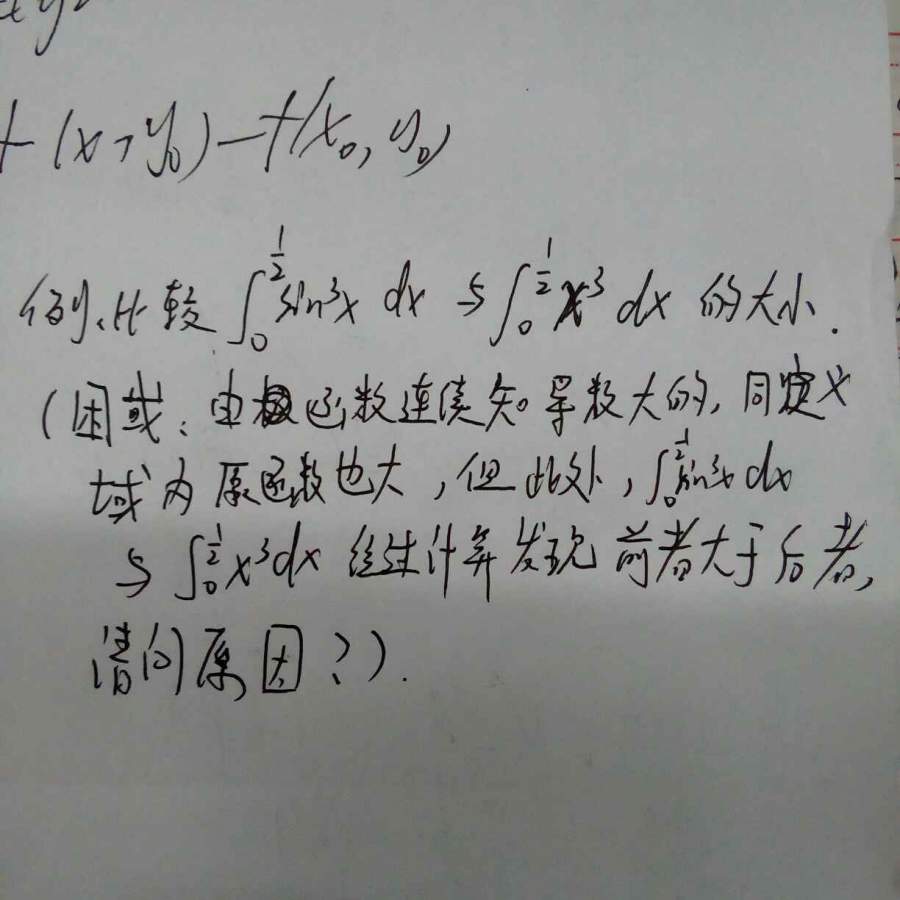 f(x,y₀)-f(x₀,y₀)
例、比较∫₀^{1/2}sin³x dx与∫₀^{1/2}x³dx的大小.
(困或:由函数连续知导数大的,同定义
域内原函数也大,但此处,∫₀^{1/2}sin³x dx
与∫₀^{1/2}x³dx经过计算发现前者大于后者,
请问原因?).